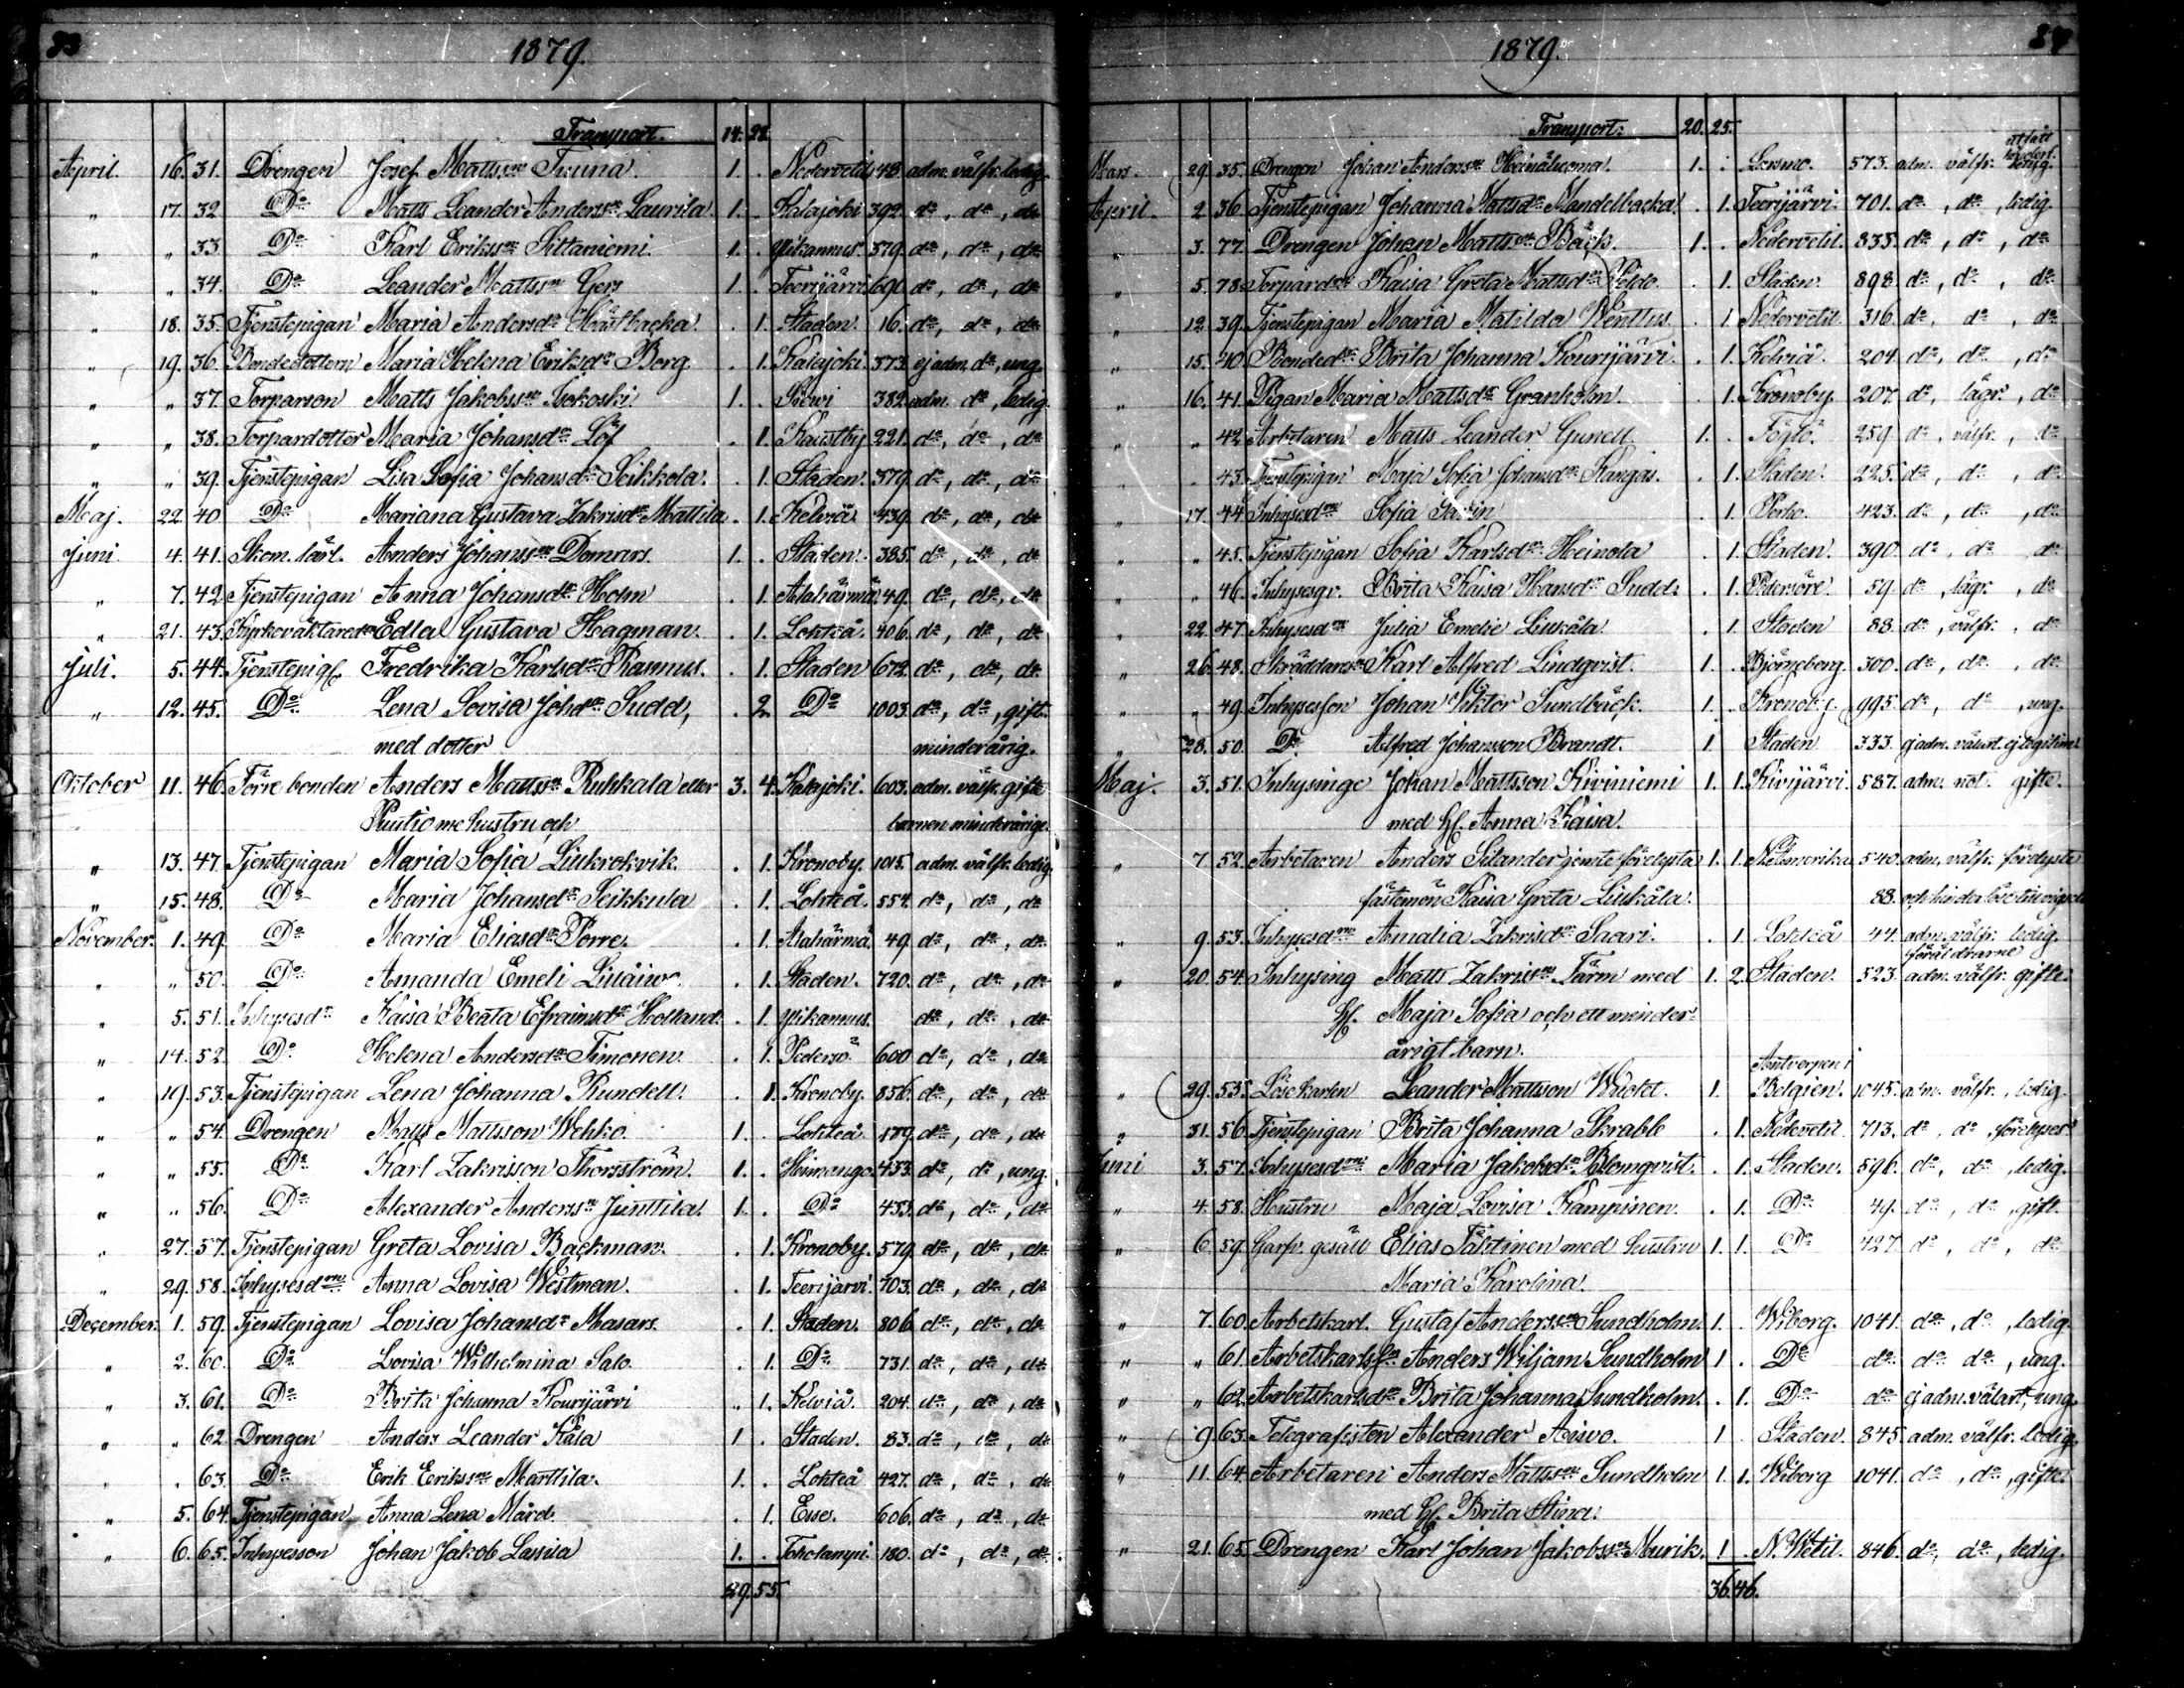 83
1879.
Transport. 14. 22.
April. 16. 31. Drengen Josef Mattsson Tunna. 1. . Nedervetil 48. adm. välfr. ledig.
" 17. 32 Do Matts Leander Anderss:n Laurila. 1. . Kalajoki 392. do, do, do
" " 33. Do Karl Erikss:n Sittaniemi. 1. . Ypikannus. 379. do, do, do
" " 34. Do Leander Mattss:n Gers 1. . Teerijärvi 690. do, do, do
" 18. 35. Tjenstepigan Maria Andersd:r Härbacka. . 1. Staden. 16. do, do, do
" 19. 36. Bondedottern Maria Helena Eriksd:r Borg . 1. Kalajoki. 373. ej adm. do, ung.
" " 37. Torparson Matts Jakobss:n Isokoski 1. . Siewi 382. adm. do, ledig.
" " 38. Torpardotter Maria Johansd:r Löf . 1. Kaustby 221. do, do, do
" " 39. Tjenstepigan Lisa Sofia Johansd:r Seikkola. . 1. Staden. 379. do, do, do
Maj. 22. 40. Do Mariana Gustava Zakrisd:r Mattila . 1. Kelviå 439. do, do, do
Juni. 4. 41. Skom. lärl. Anders Johanss:n Domars. 1. . Staden. 385. do, do, do
" 7. 42. Tjenstepigan Anna Johansd:r Holm . 1. Alahärmä. 49. do, do, do
" 21. 43. Kyrkoväktared:r Edla Gustava Hagman. . 1. Lohteå. 406. do, do, do
Juli. 5. 44. Tjenstepig. Fredrika Karlsd:r Kannus. . 1. Staden 672. do, do, do
" 12. 45. Do Lena Lovisa Johd:r Sudd, . 2. Do 1003. do, do, gift.
med dotter minderårig.
Oktober 11. 46. Förre bonden Anders Mattss:n Ruhkala eller 3. 4. Kalajoki. 603. adm. välfr. gifte
Puutio me hustru och barnen minderårige.
" 13. 47. Tjenstepigan Maria Sofia Liukrokvik. . 1. Kronoby. 1015. adm. välfr. ledig.
" 15. 48. Do Maria Johansd:r Seikkula . 1. Lohteå. 554. do, do, do
November. 1. 49. Do Maria Eliasd:r Porre. . 1. Alahärmä. 49. do, do, do
" " 50. Do Amanda Emeli . 1. Staden. 720. do, do, do
" 5. 51. Inhysesd:r Kaisa Beata Efraimsd:r Holland. . 1. Ypikannus. do, do, do
" 14. 52. Do Helena Andersd:r Timonen. . 1. Pedersö 600 do, do, do
" 19. 53. Tjenstepigan Lena Johanna Rundell. . 1. Kronoby. 856. do, do, do
" " 54. Drengen Matts Mattsson Wehko. 1. . Lohteå 479. do, do, do
" " 55. Do Karl Zakrisson Thorsström. 1. . Himango. 453. do, do, ung.
" " 56. Do Alexander Anderss:n Junttila. 1. . Do 453. do, do, do
" 27. 57. Tjenstepigan Greta Lovisa Backman. . 1. Kronoby. 579. do, do, do
" 29. 58. Inhysesd:rn Anna Lovisa Westman. . 1. Teerijärvi. 703. do, do, do
December. 1. 59. Tjenstepigan Lovisa Johansd:r Masars. . 1. Staden. 806. do, do, do
" 2. 60. Do Lovisa Wilhelmina Salo. . 1. Do 731. do, do, do
" 3. 61. Do Brita Johanna Kourijärvi " 1. Kelviå. 204. do, do, do
" " 62. Drengen Anders Leander Kåla 1 . Staden. 83. do, do, do
" . 63. Do Erik Erikss:n Marttila. 1. . Lohteå 427. do, do, do
" 5. 64. Tjenstepigan Anna Lena Mård. . 1. Esse. 606. do, do, do
" 6. 65. Inhysesson Johan Jakob Lassila 1. . Toholampi. 180. do, do, do.
29. 55.
84
1879.
Transport. 20. 25.
Mars. 29. 35. Drengen Johan Anderss:n Heinäluoma. 1. . Lesmo. 573. adm. välfr. ledig.
April. 2 36. Tjenstepigan Johanna Mattsd:r Mandelbacka. . 1. Teerijärvi. 701. do, do, ledig.
" 3. 77. Drengen Johan Mattss:n Bäck. 1. . Nedervetil. 835. do, do, do
" 5. 78. Torpard:r Kaisa Greta Mattsd:r Peldo. . 1. Staden. 898. do, do, do
" 12 39. Tjenstepigan Maria Matilda Wenttus. . 1. Nedervetil. 316. do, do, do
" 15. 40. Bonded:r Brita Johanna Kourijärvi. . 1. Kelviå. 204. do, do, do
" 16. 41. Pigan Maria Mattsd:r Granholm. . 1. Kronoby. 207. do, lägr., do
" " 42. Arbetaren Matts Leander Gunell. 1. . Föglö. 259. do, välfr., do
" . 43. Tjenstepigan Maja Sofia Johansd:r Kangas. . 1. Staden. 225. do, do, do
" 17. 44. Inhysesd:rn Sofia . 1. Perho. 423. do, do, do
" " 45. Tjenstepigan Sofia Karlsd:r Heinola . 1. Staden. 390. do, do do
" " 46. Inhysesqv. Brita Kaisa Hansd:r Sudd. . 1. Pedersöre. 59. do, lägr., do
" 22. 47. Inhysesd:rn Julia Emelie Liukåla. . 1. Staden 88. do, välfr., do
" 26. 48. Skräddares:n Karl Alfred Lindqvist. 1. . Björneborg. 300. do, do, do
" " 49. Inhysesson Johan Viktor Sundbäck. 1. . Kronoby. 995. do, do, ung.
" 28. 50. Do Alfred Johansson Brandt. 1. Staden 333. ej adm. välart. ej legitime
Maj. 3. 51. Inhysinge Johan Mattsson Kiviniemi 1. 1. Kivijärvi. 587. adm. not. gifte.
med h. Anna Kaisa.
" 7. 52. Arbetaren Anders Silander jemte förelysta 1. 1. N. Amerika 540. adm. välfr. förelysta
fästemön Kaisa Greta Liukåla. 88. och hinderlöse till vigsel
" 9. 53. Inhysesd:rn Amalia Zakrisd:r Saari. . 1. Lohteå 44. adm. välfr. ledig.
föräldrarne
" 20. 54. Inhysing Matts Zakriss:n Färm med 1. 2. Staden. 523. adm. välfr. gifte.
h. Maja Sofia och ett minder-
årigt barn.
Antverpen i
" 29. 55. Lösekarlen Leander Mattsson Wuolet. 1. Belgien. 1045. adm. välfr., ledig.
" 31. 56. Tjenstepigan Brita Johanna Skrabb . 1. Nedevetil. 713. do, do, förelyser
Juni 3. 57. Inhysesd:rn Maria Jakobsd:r Blomqvist. . 1. Staden. 596. do, do, ledig.
" 4. 58. Hustru Maja Lovisa Kampinen. . 1. Do 49. do, do, gift.
" 6 59. Garfv. gesäll Elias Tältinen med hustru 1. 1. Do 427. do, do, do
Maria Karolina.
" 7. 60. Arbetskarl. Gustaf Anderss:n Sundholm. 1. . Wiborg. 1041. do, do, ledig.
" " 61. Arbetskarlss:n Anders Wiljam Sundholm 1 . Do do do do, ung.
" " 62. Arbetskarlsd:r Brita Johanna Sundholm. . 1. Do do ej adm. välart, ung.
" 9. 63. Telegrafisten Alexander Aiwo. 1 Staden. 845. adm. välfr. ledig.
" 11. 64. Arbetaren Anders Mattss:n Sundholm 1. 1. Wiborg 1041. do, do, gifte.
med h. Brita Stina.
" 21. 65. Drengen Karl Johan Jakobss:n Murik. 1 . N. Wetil. 846. do, do, ledig.
36. 46.